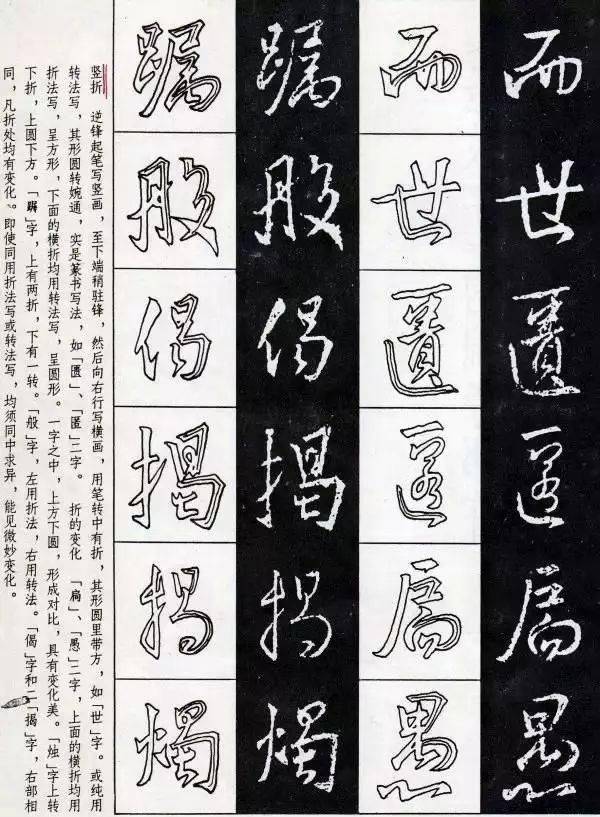 而世匱匿扁愚
而世匱匿扁愚
般偈揭揭燭
般偈揭揭燭
竖折 逆锋起笔写竖画，至下端稍驻锋，然后向右行写横画，用笔转中有折，其形圆里带方，如「世」字。或纯用
转法写，其形圆转婉通，实是篆书写法，如「匱」、「匿」二字。 折的变化 「扁」、「愚」二字，上面的横折均用
折法写，呈方形，下面的横折均用转法写，呈圆形。一字之中，上方下圆，形成对比，具有变化美。「烛」字上转
下折，上圆下方。「」字，上有两折，下有一转。「般」字，左用折法，右用转法。「偈」字和二「揭」字，右部相
同，凡折处均有变化。即使同用折法写或转法写，均须同中求异，能见微妙变化。